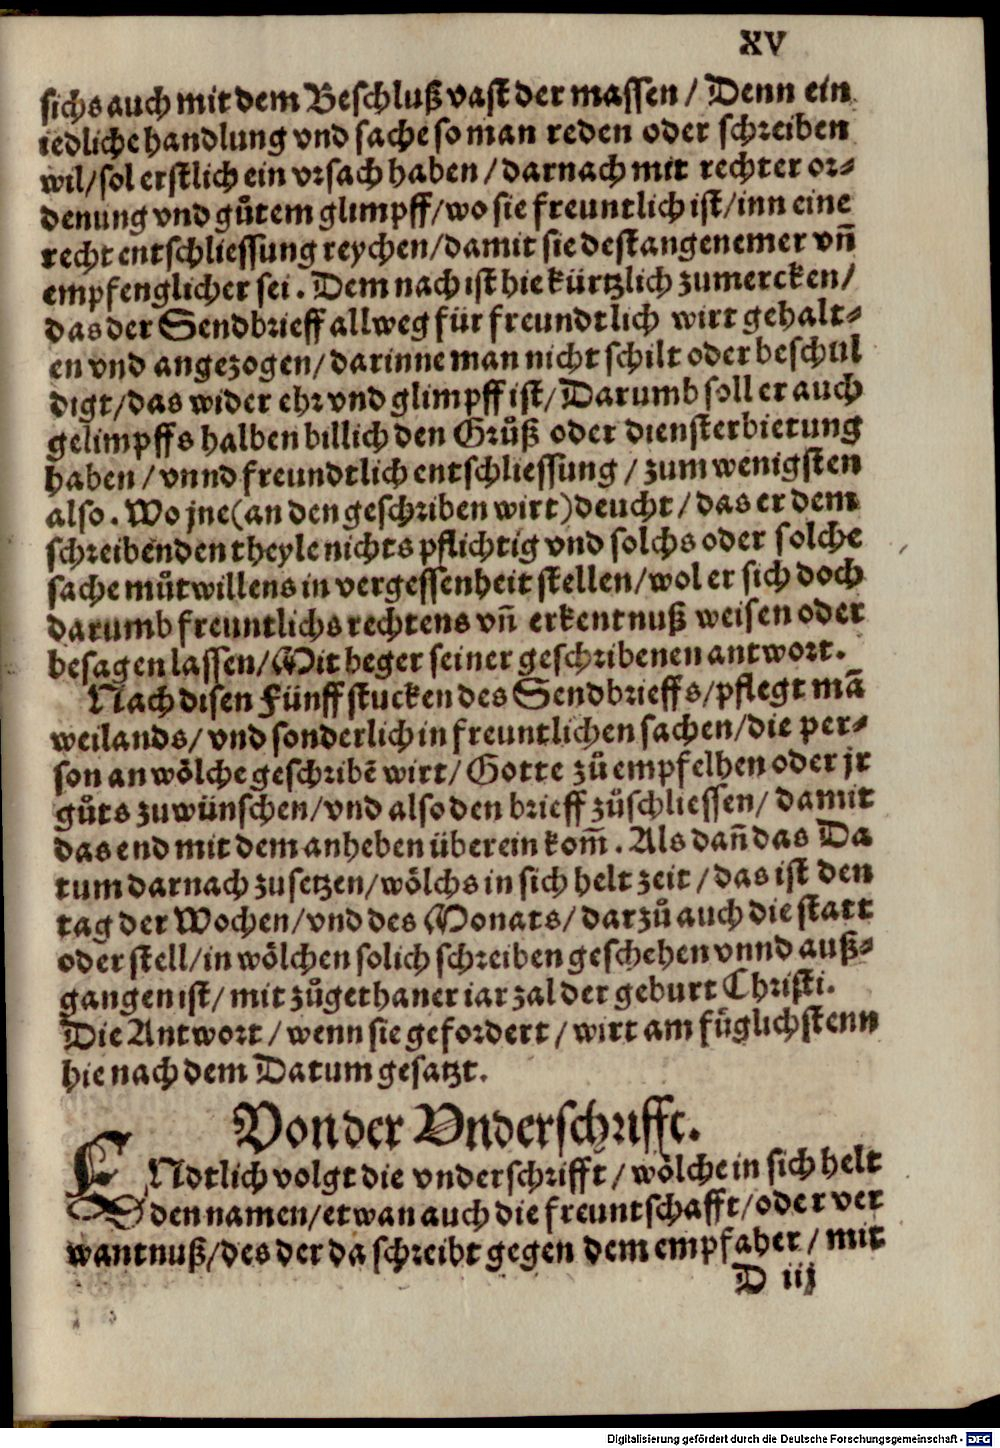 XV
sichs auch mit dem Beschluß vast der massen / Denn ein
iedliche handlung vnd sache so man reden oder schreiben
wil/sol erstlich ein vrsach haben/darnach mit rechter or⸗
denung vnd gůtem glimpff/wo sie freuntlich ist/inn eine
recht entschliessung reychen/damit sie dest angenemer vñ
empfenglicher sei. Dem nach ist hie kürtzlich zumercken/
das der Sendbrieff allweg für freundtlich wirt gehalt⸗
en vnd angezogen/darinne man nicht schilt oder beschul
digt/das wider ehr vnd glimpff ist/Darumb soll er auch
gelimpffs halben billich den Grůß oder diensterbietung
haben/vnnd freundtlich entschliessung/zum wenigsten
also. Wo jne(an den geschriben wirt)deucht/das er dem
schreibenden theyle nichts pflichtig vnd solchs oder solche
sache můtwillens in vergessenheit stellen/wol er sich doch
darumb freuntlichs rechtens vñ erkentnuß weisen oder
besagen lassen/Mit beger seiner geschribenen antwort.
Nach disen Fünff stucken des Sendbrieffs/pflegt mã
weilands/vnd sonderlich in freuntlichen sachen/die per⸗
son an wölche geschribẽ wirt/Gotte zů empfelhen oder jr
gůts zuwünschen/vnd also den brieff zůschliessen/damit
das end mit dem anheben überein kom̃. Als dañ das Da
tum darnach zusetzen/wölchs in sich helt zeit/das ist den
tag der Wochen/vnd des Monats/darzů auch die statt
oder stell/in wölchen solich schreiben geschehen vnnd auß⸗
gangen ist/mit zůgethaner iar zal der geburt Christi.
Die Antwort/wenn sie gefordert/wirt am füglichstenn
hie nach dem Datum gesatzt.
Von der Vnderschrifft.
ENdtlich volgt die vnderschrifft/wölche in sich helt
den namen/etwan auch die freuntschafft/oder ver
wantnuß/des der da schreibt gegen dem empfaher/mit
D iij
Digitalisierung gefördert durch die Deutsche Forschungsgemeinschaft - DFG